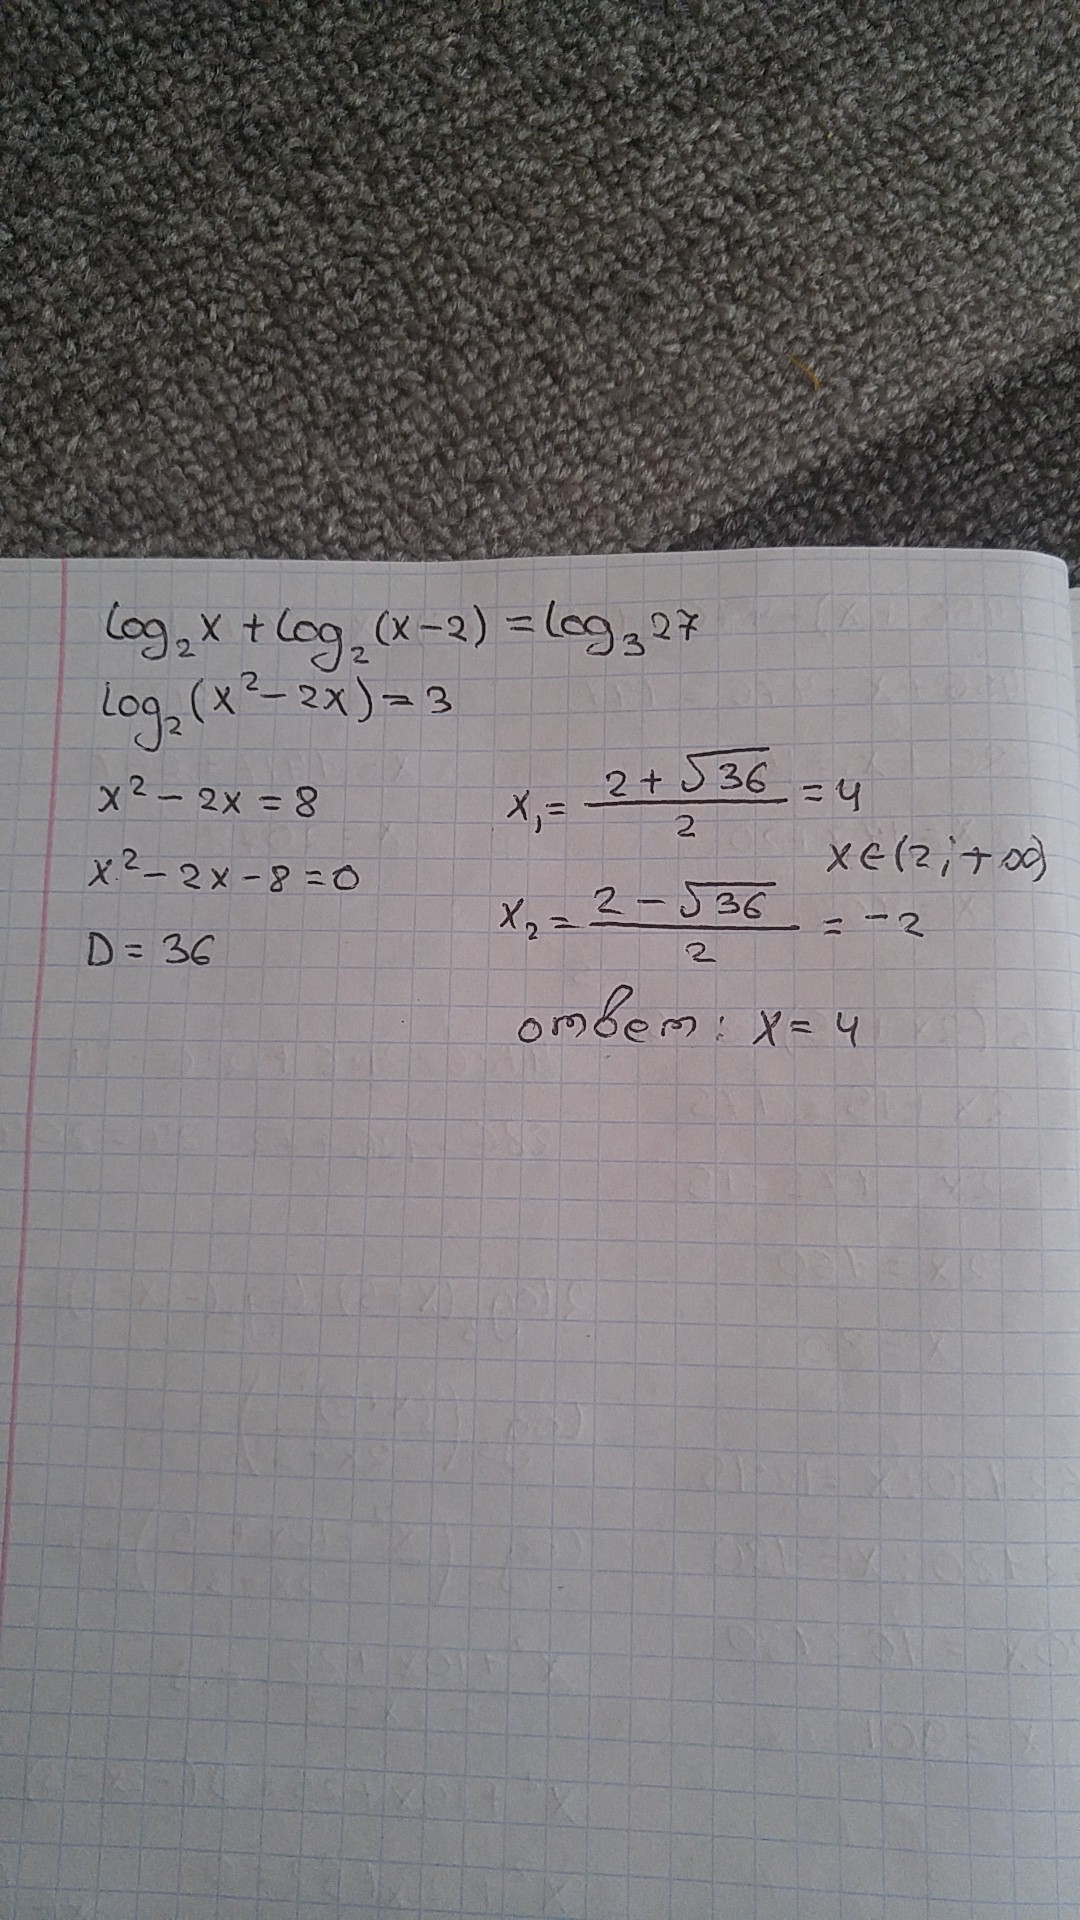 log₂x + log₂(x-2) = log₃27
log₂(x²-2x) = 3
x² - 2x = 8
x² - 2x - 8 = 0
D = 36
x₁ = (2 + √36)/2 = 4
x ∈ (2; + ∞)
x₂ = (2 - √36)/2 = -2
ответ: x = 4